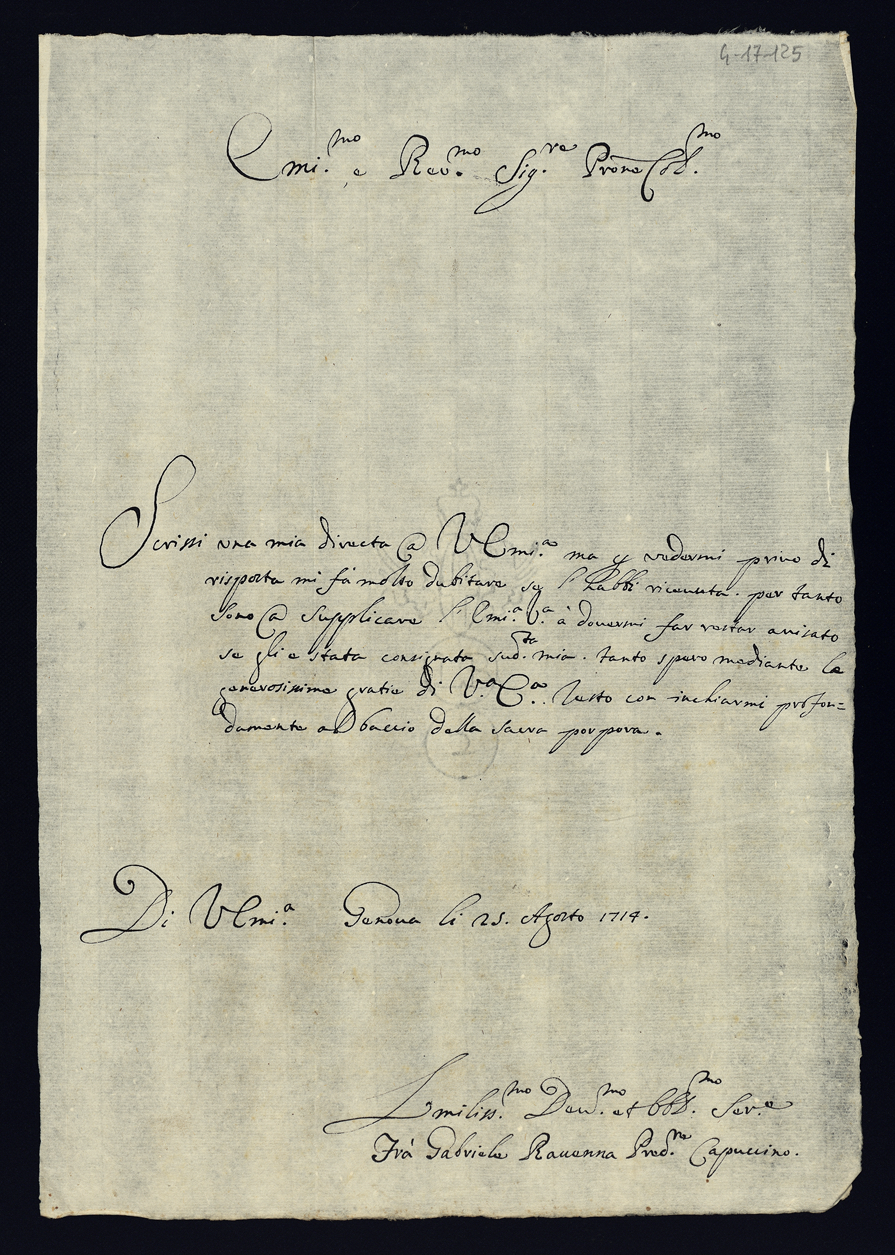 4-17-125
Emi.mo e Rev.mo Sig.re Prone Col.mo
Scrissi una mia directa a V Emi.a ma p vedermi privo di
risposta mi fà molto dubitare se l'habbi ricevuta. per tanto
sono a supplicare l'Emi.a V.a à dovermi far restar avisato
se gli e stata consignata sud.ta mia. tanto spero mediante le
generosissime gratie di V.a E.a. Resto con inchiarmi profon=
damente al baccio della sacra porpora.
Di V Emi.a Genova li 25. Agosto 1714.
Umiliss.mo Deu.mo et Obb.mo Ser.e
Frà Gabriele Ravenna Pred.re Capuccino.